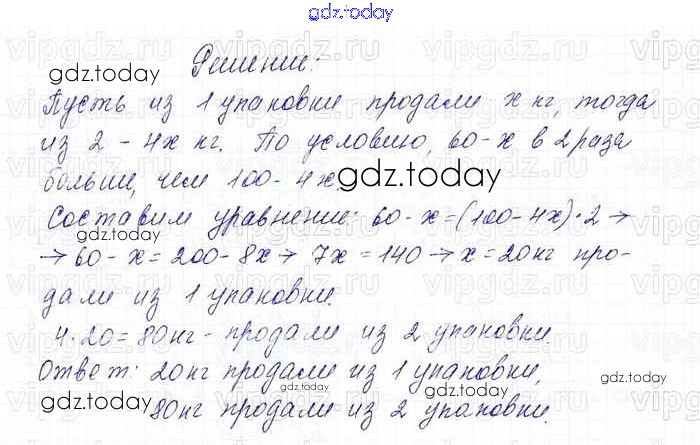 gdz.today
Решение:
gdz.today
Пусть из 1 упаковки продали x кг, тогда
из 2 - 4x кг. По условию, 60-x в 2 раза
больше, чем 100-4x
gdz.today
Составим уравнение: 60-x=(100-4x)·2 →
gdz.today
→ 60-x=200-8x → 7x=140 → x=20кг про-
дали из 1 упаковки.
4·20=80кг - продали из 2 упаковки.
Ответ: 20кг продали из 1 упаковки,
gdz.today
gdz.today
gdz.today
80кг продали из 2 упаковки.